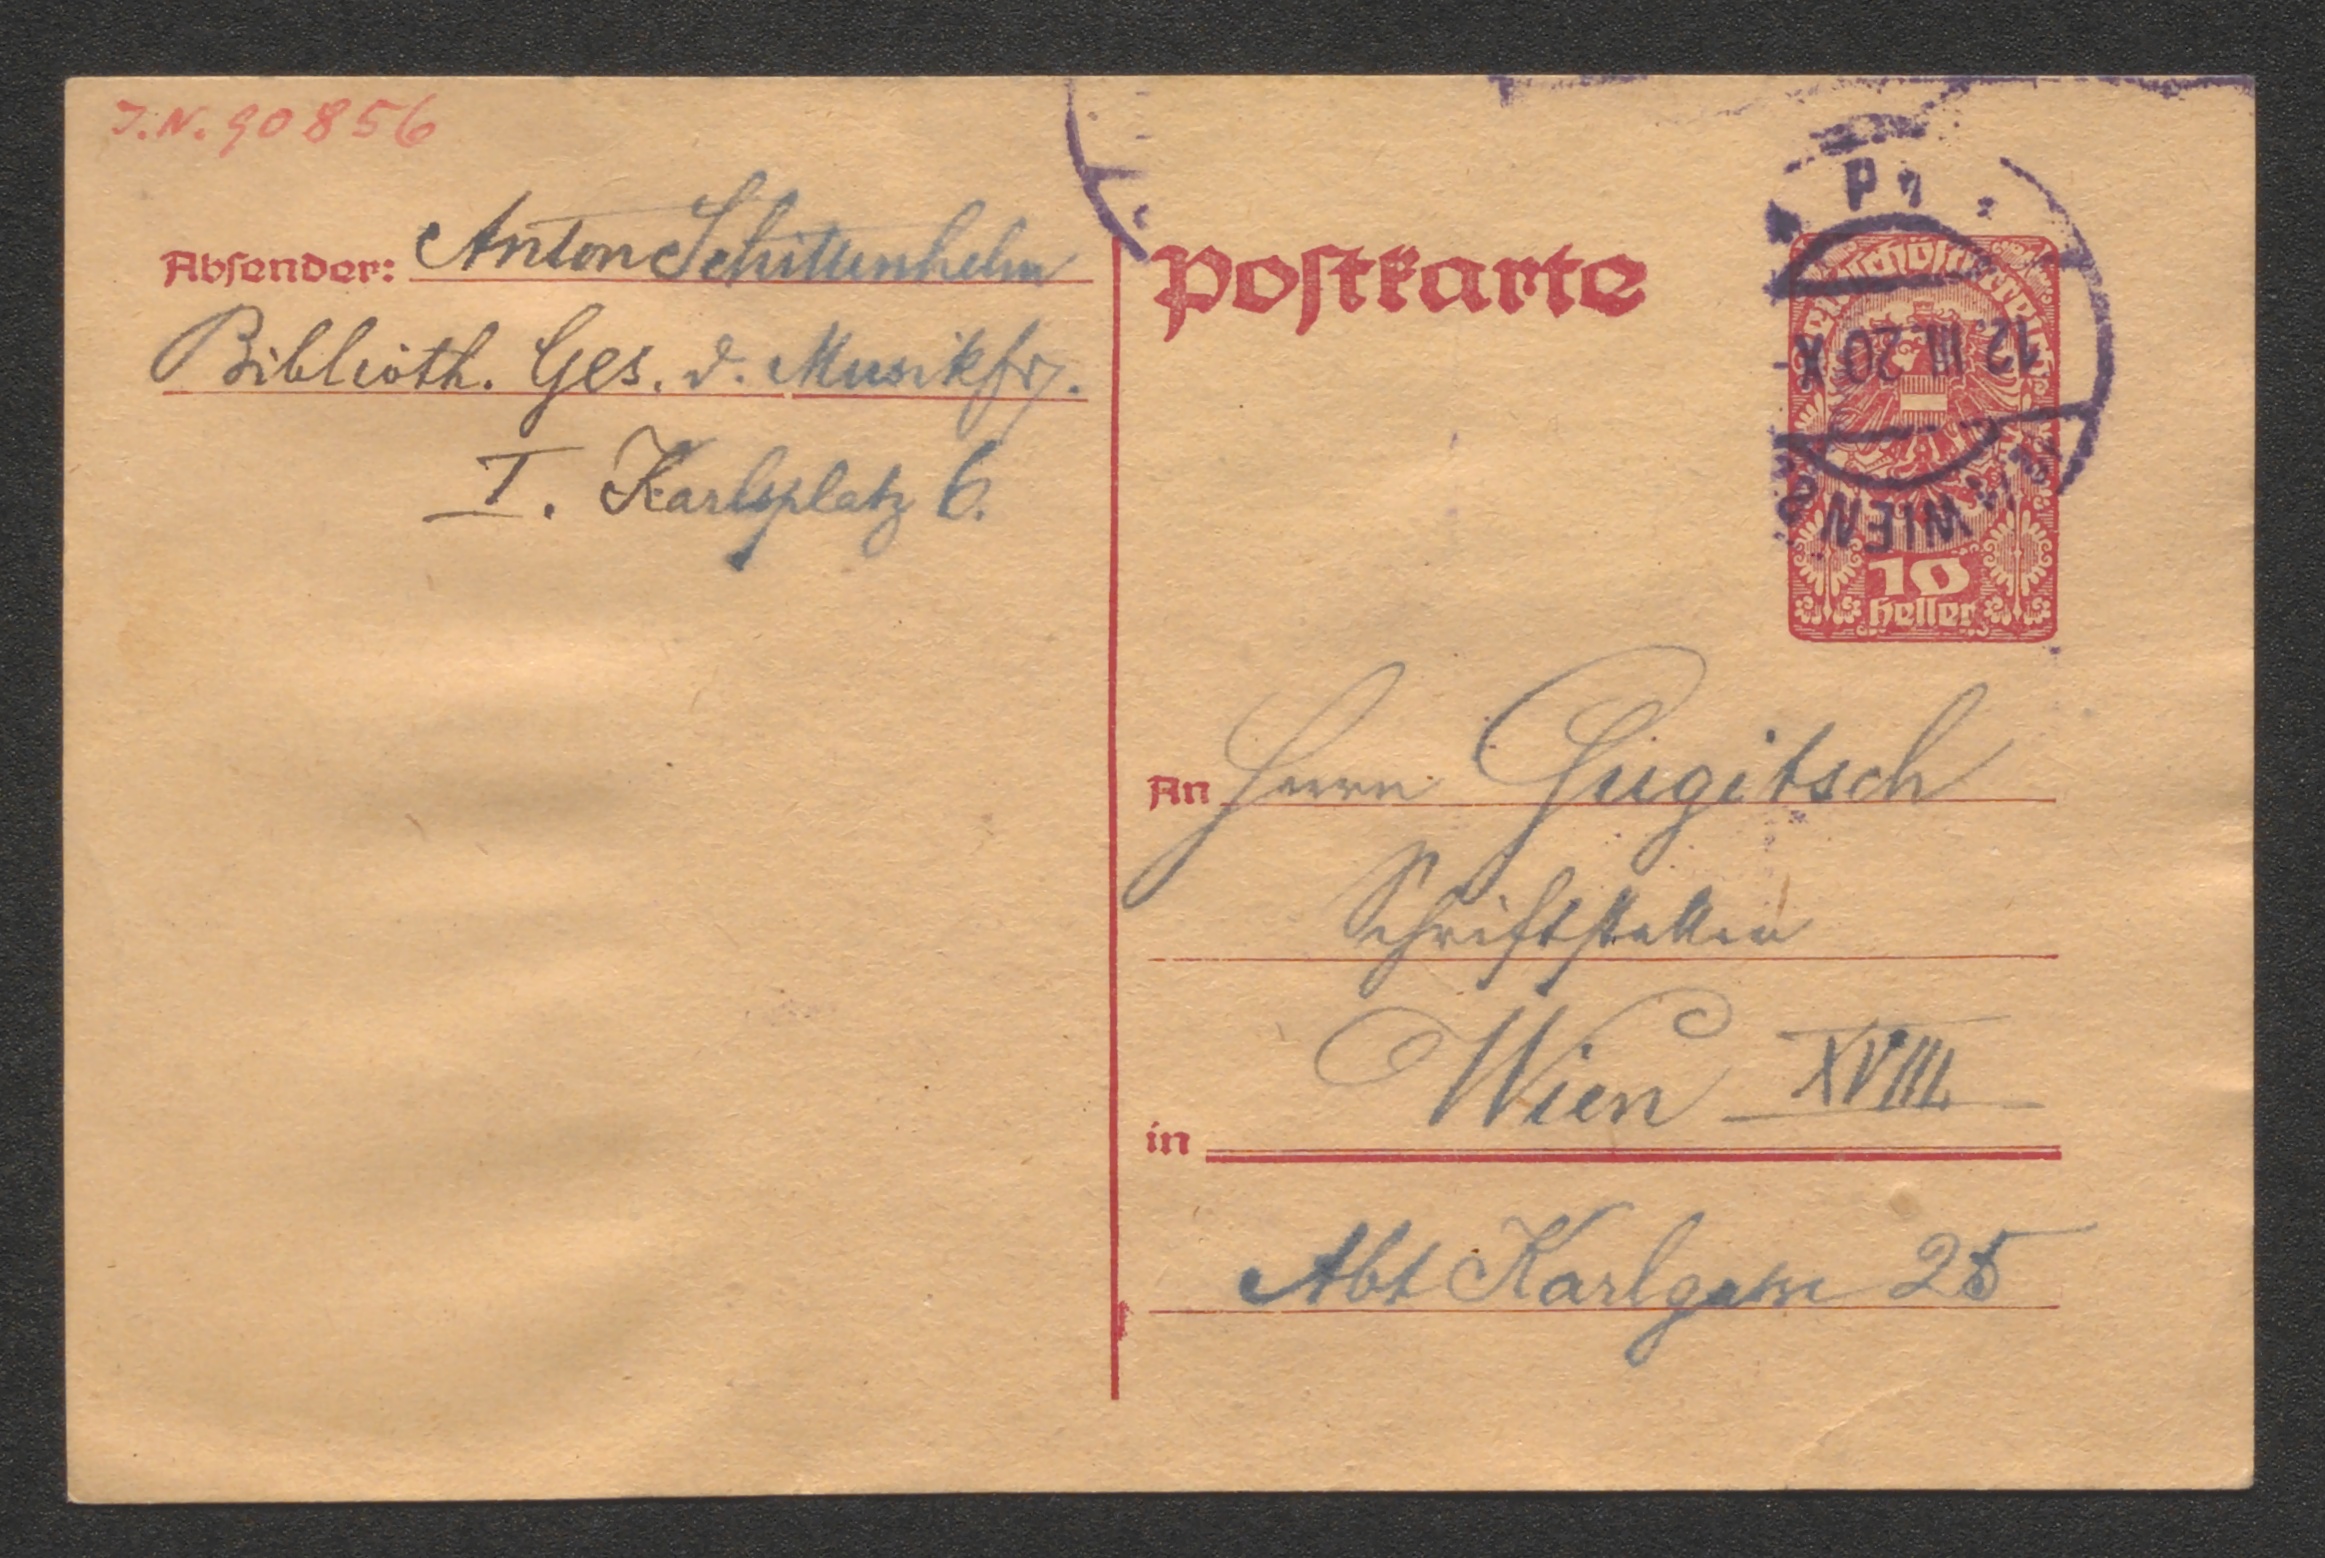 I.N. 90856
Absender: Anton Schittenhelm
Biblioth. Ges. d. Musikfr.
I. Karlsplatz 6.
Postkarte
Deutschösterreich
12.III.20 X
WIEN
10
Heller
An Herrn Gugitsch
Schriftsteller
in Wien XVIII
Abt Karlgasse 25